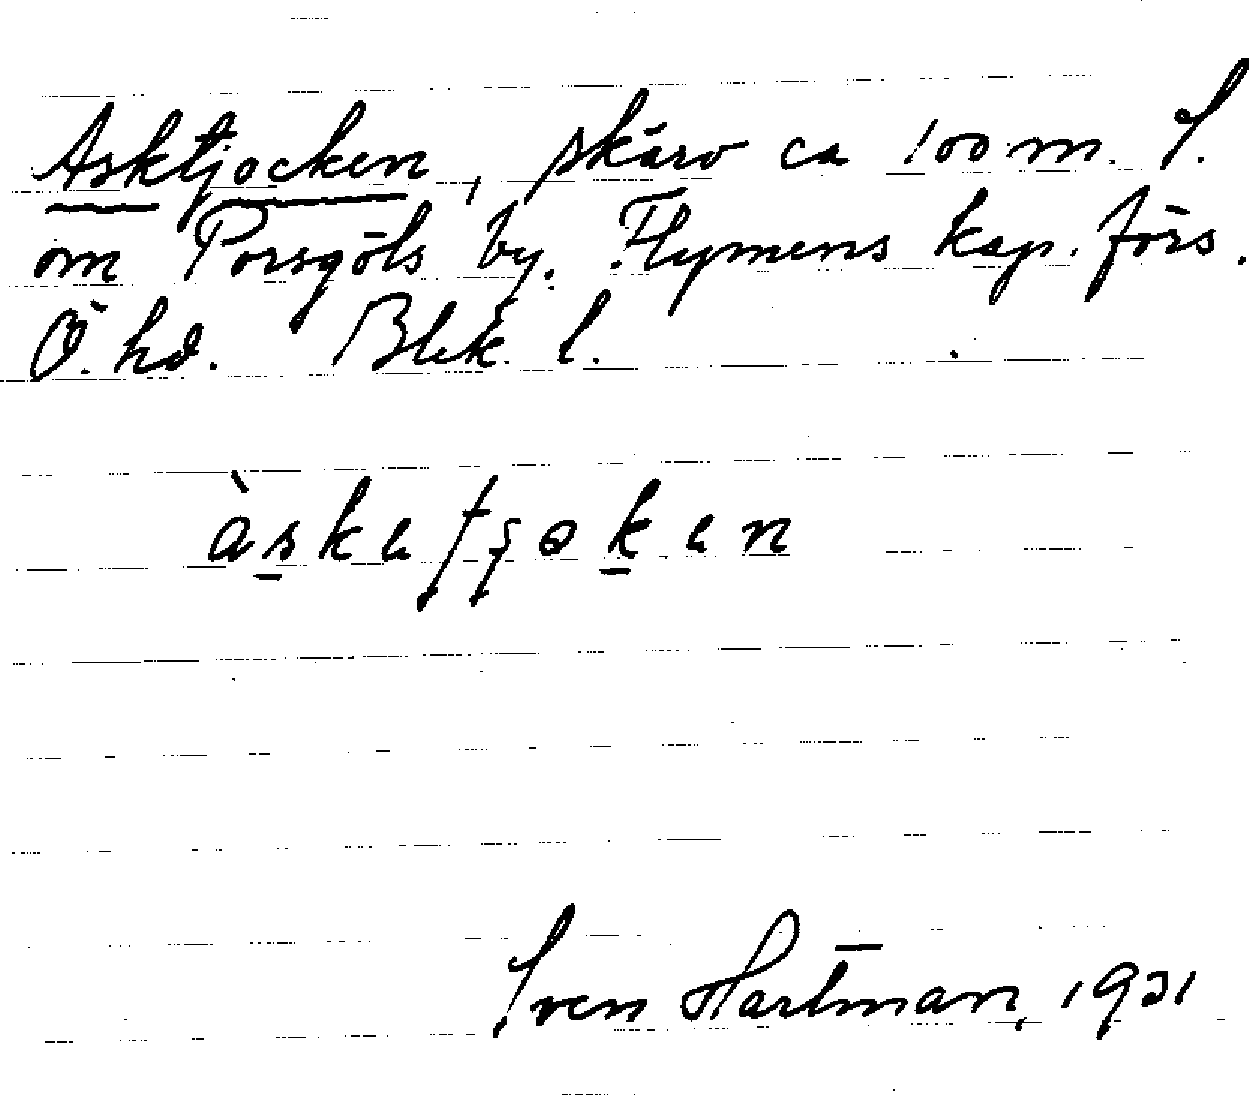 Asktjocken, skärv ca 100 m. S.
om Porsgöls by. Flymens kap. förs.
Ö. hd. Blek. l.
Sven Hartman, 1931